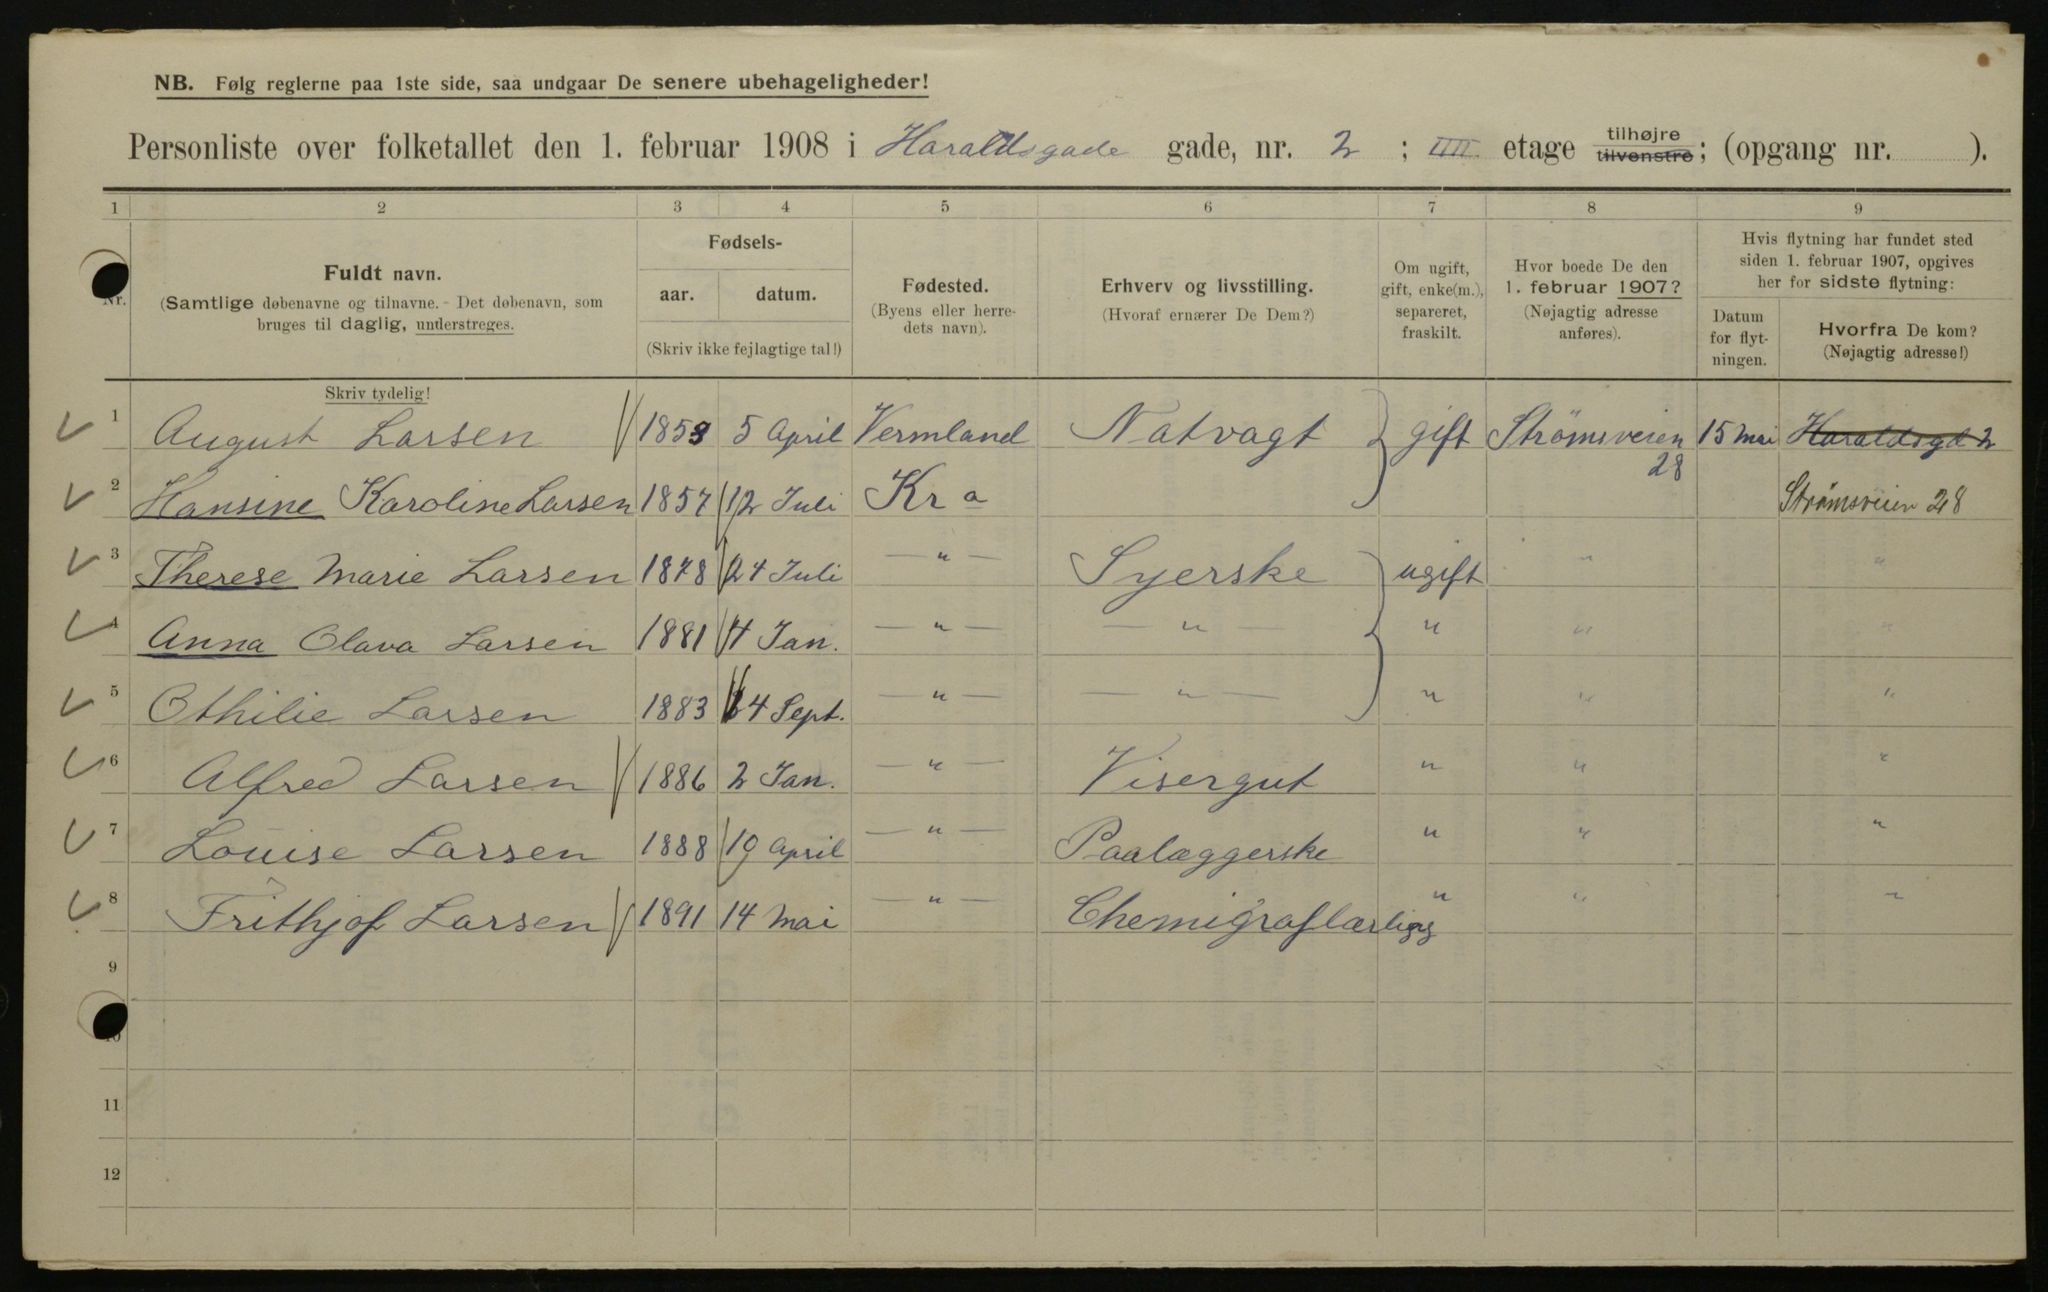 NB. Følg reglerne paa 1ste side, saa undgaar De senere ubehageligheder!
Personliste over folketallet den 1. februar 1908 i Haraldsgade gade, nr. 2 ; IIII etage tilhøjre tilvenstre ; (opgang nr. ).
1 2 3 4 5 6 7 8 9
Nr.
Fuldt navn.
(Samtlige døbenavne og tilnavne. - Det døbenavn, som
bruges til daglig, understreges.
Skriv tydelig!
Fødsels-
aar. datum.
(Skriv ikke fejlagtige tal!)
Fødested.
(Byens eller herre-
dets navn).
Erhverv og livsstilling.
(Hvoraf ernærer De Dem?)
Om ugift,
gift, enke(m.),
separeret,
fraskilt.
Hvor boede De den
1. februar 1907?
(Nøjagtig adresse
anføres).
Hvis flytning har fundet sted
siden 1. februar 1907, opgives
her for sidste flytning:
Datum
for flyt-
ningen.
Hvorfra De kom?
(Nøjagtig adresse!)
1 August Larsen 1853 5 April Vermland Natvagt gift Strømsveien 28 15 Mai Haraldsgd 2
2 Hansine Karoline Larsen 1857 12 Juli Kr a Strømsveien 28
3 Therese Marie Larsen 1878 24 Juli — " — Syerske ugift " "
4 Anna Olava Larsen 1881 4 Jan. — " — — " — " " "
5 Othilie Larsen 1883 4 Sept. — " — — " — " " "
6 Alfred Larsen 1886 2 Jan. — " — Visergut " " "
7 Louise Larsen 1888 19 April — " — Paalæggerske " " "
8 Frithjof Larsen 1891 14 Mai — " — Chemigraflærling " " "
9
10
11
12